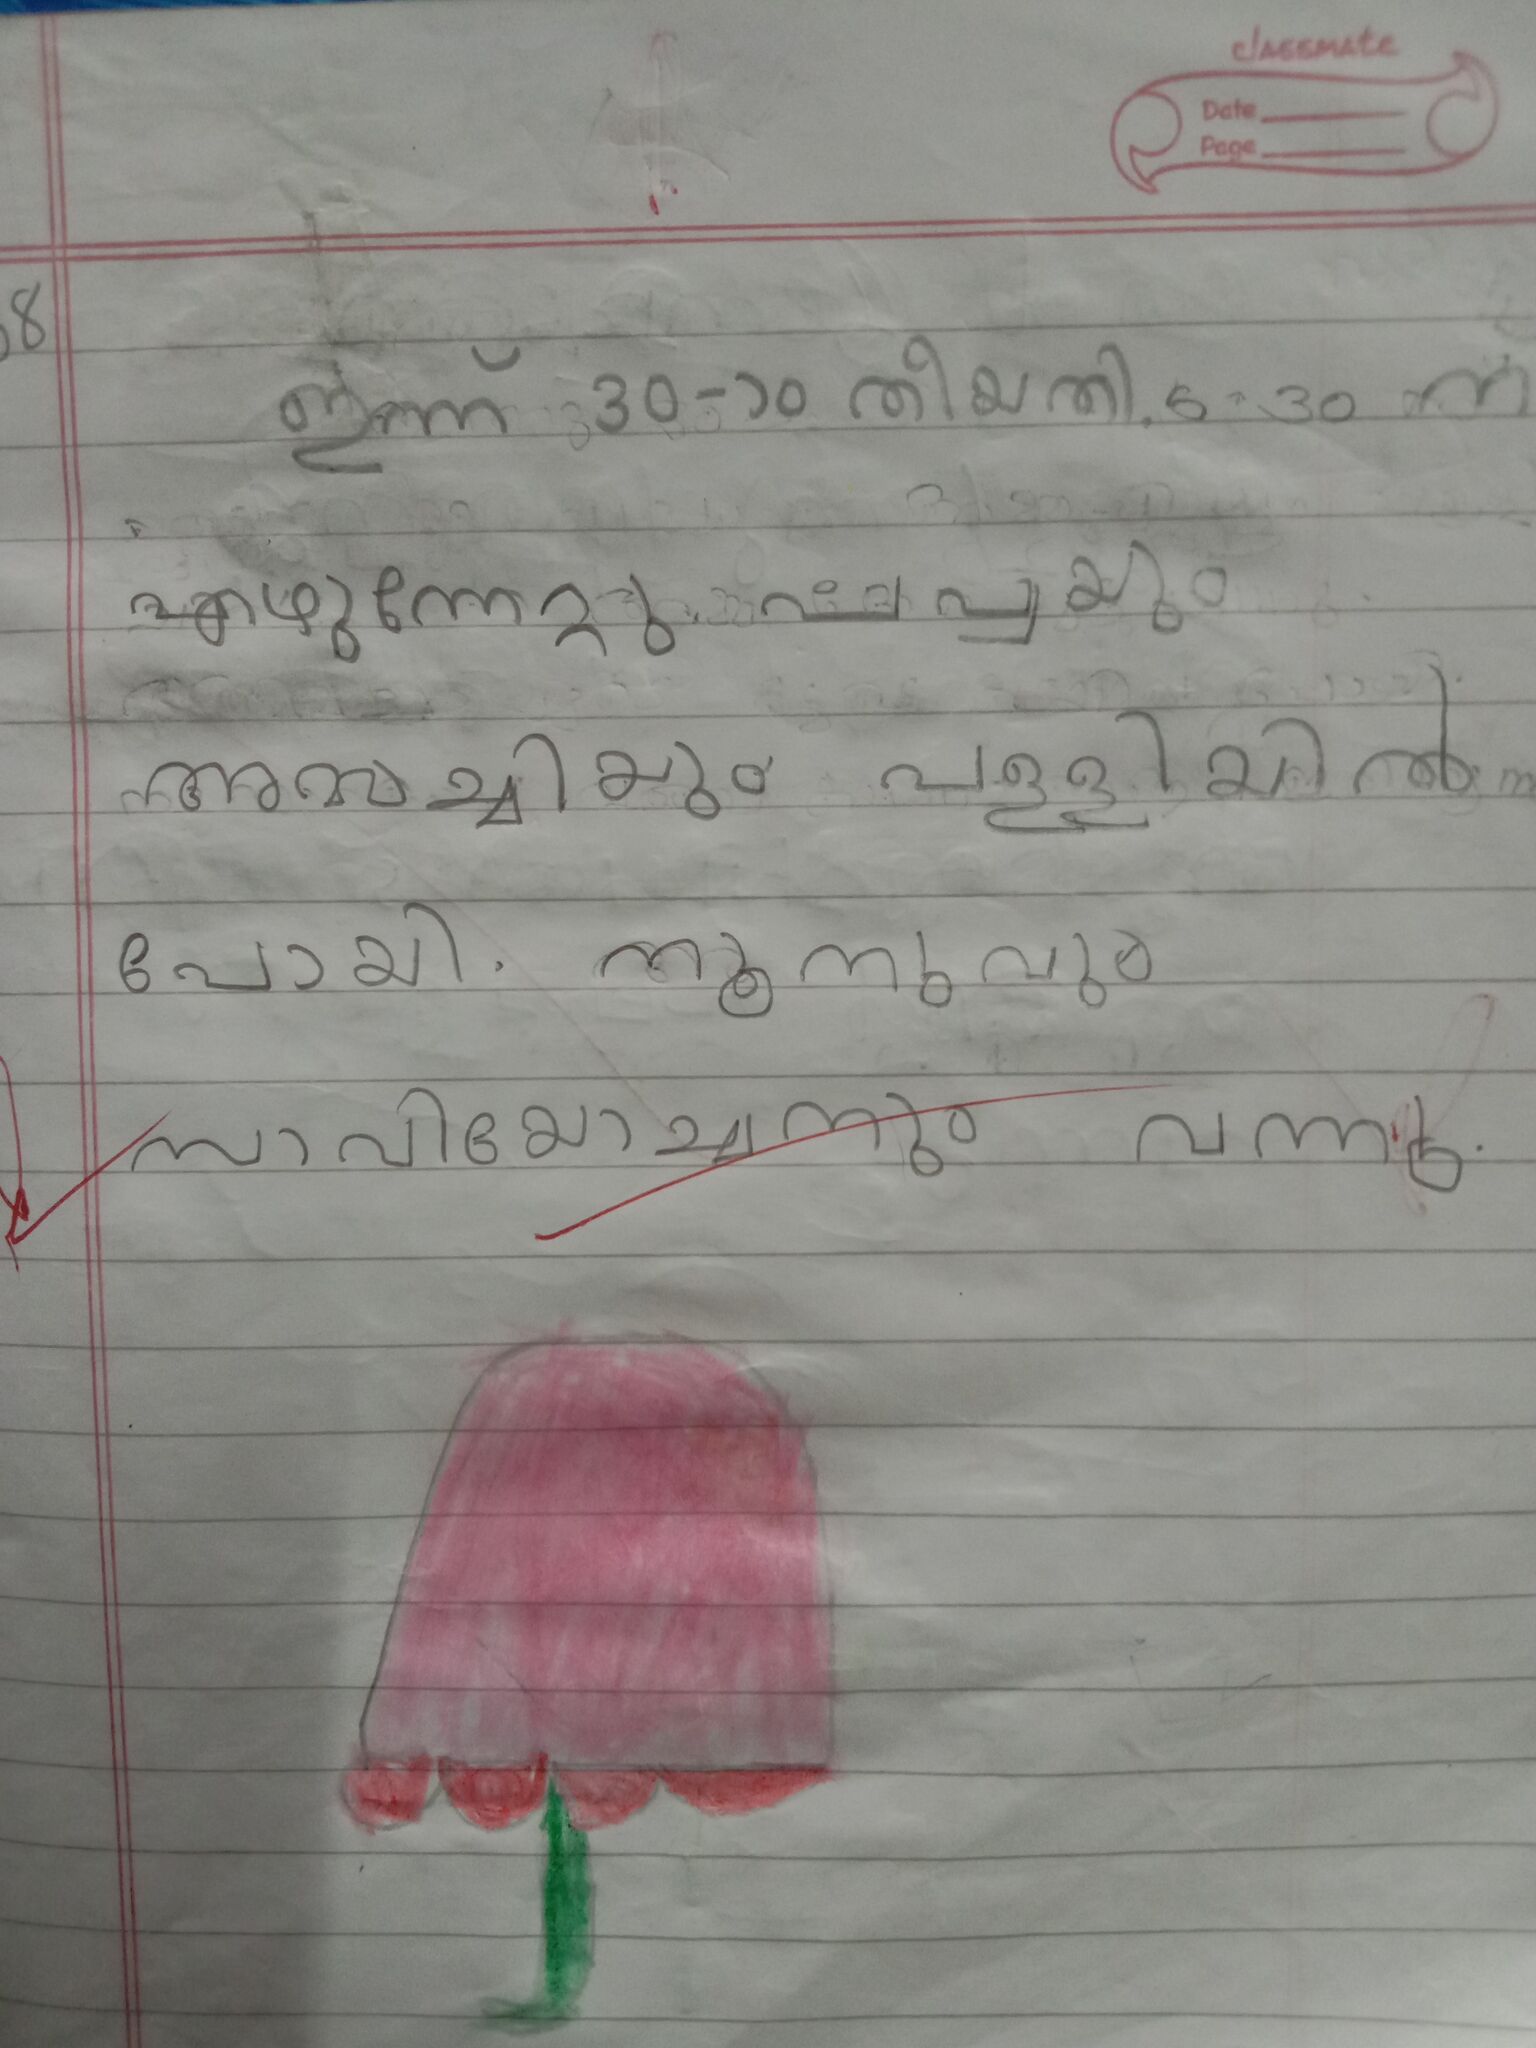 classmate
Date
Page
ഇന്ന് 30-10 തീയതി. 6-30 ന്
എഴുന്നേറ്റു.
അമ്മച്ചിയും പള്ളിയിൽ
പോയി. നൂനുവും
സാവിയോച്ചനും വന്നു.